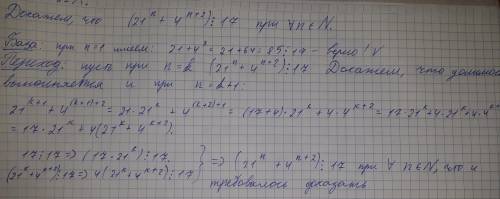 Докажем, что (21ⁿ + 4ⁿ⁺²)⋮17 при ∀n∈N.
База: при n=1 имеем: 21+4³=21+64=85⋮17 – верно! V
Переход: пусть при n=k (21ᵏ + 4ᵏ⁺²)⋮17. Докажем, что
выполняется и при n=k+1:
21ᵏ⁺¹ + 4⁽ᵏ⁺¹⁾⁺² = 21·21ᵏ + 4⁽ᵏ⁺²⁾⁺¹ = (17+4)·21ᵏ + 4·4ᵏ⁺² = 17·21ᵏ+4·21ᵏ+4·4ᵏ⁺²
= 17·21ᵏ + 4(21ᵏ + 4ᵏ⁺²).
17⋮17 => (17·21ᵏ)⋮17
(21ᵏ+4ᵏ⁺²)⋮17 => 4(21ᵏ+4ᵏ⁺²)⋮17 } => (21ⁿ + 4ⁿ⁺²)⋮17 при ∀ n∈N, что и
требовалось доказать